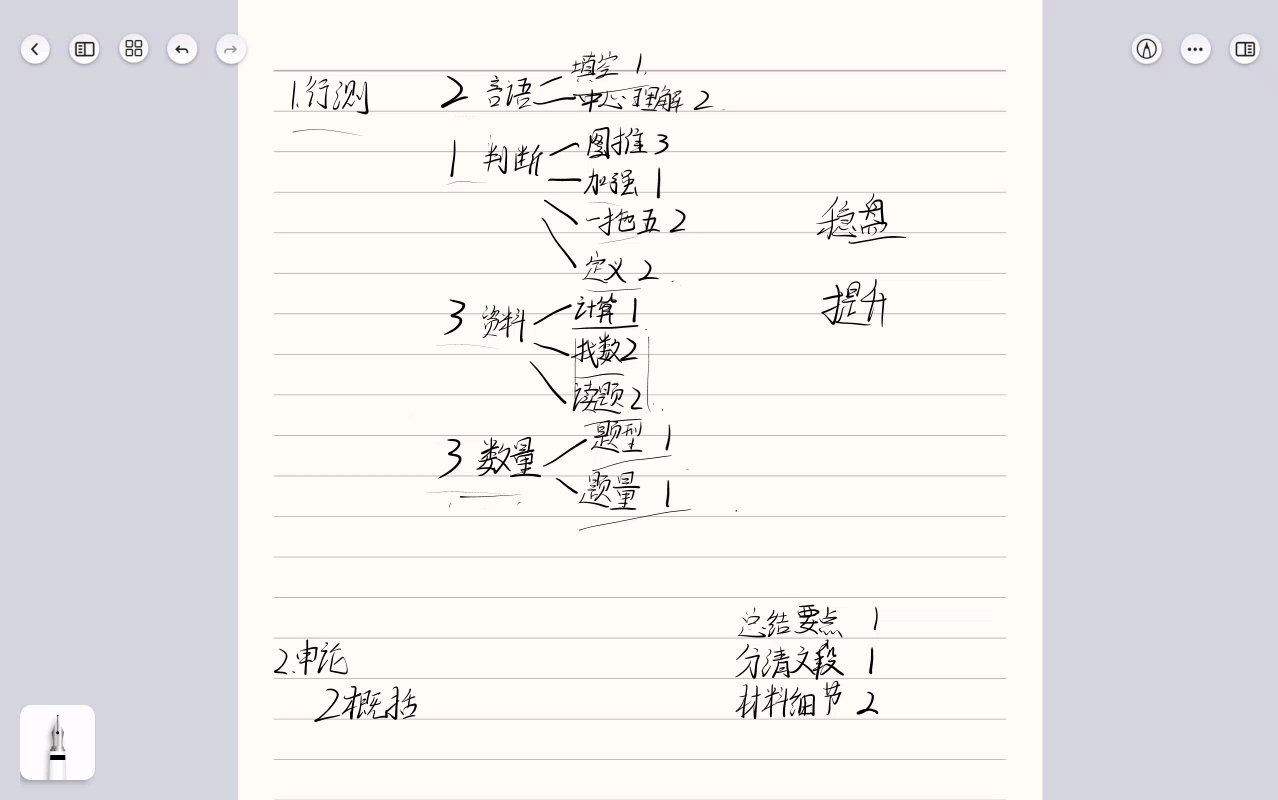 填空 1
1.行测 2 言语 中心理解 2
1 判断 图推 3
加强 1
一拖五 2
稳盘
定义 2
提升
3 资料 计算 1
找数 2
读题 2
3 数量 题型 1
题量 1
总结要点 1
2.申论 分清文段 1
2概括 材料细节 2